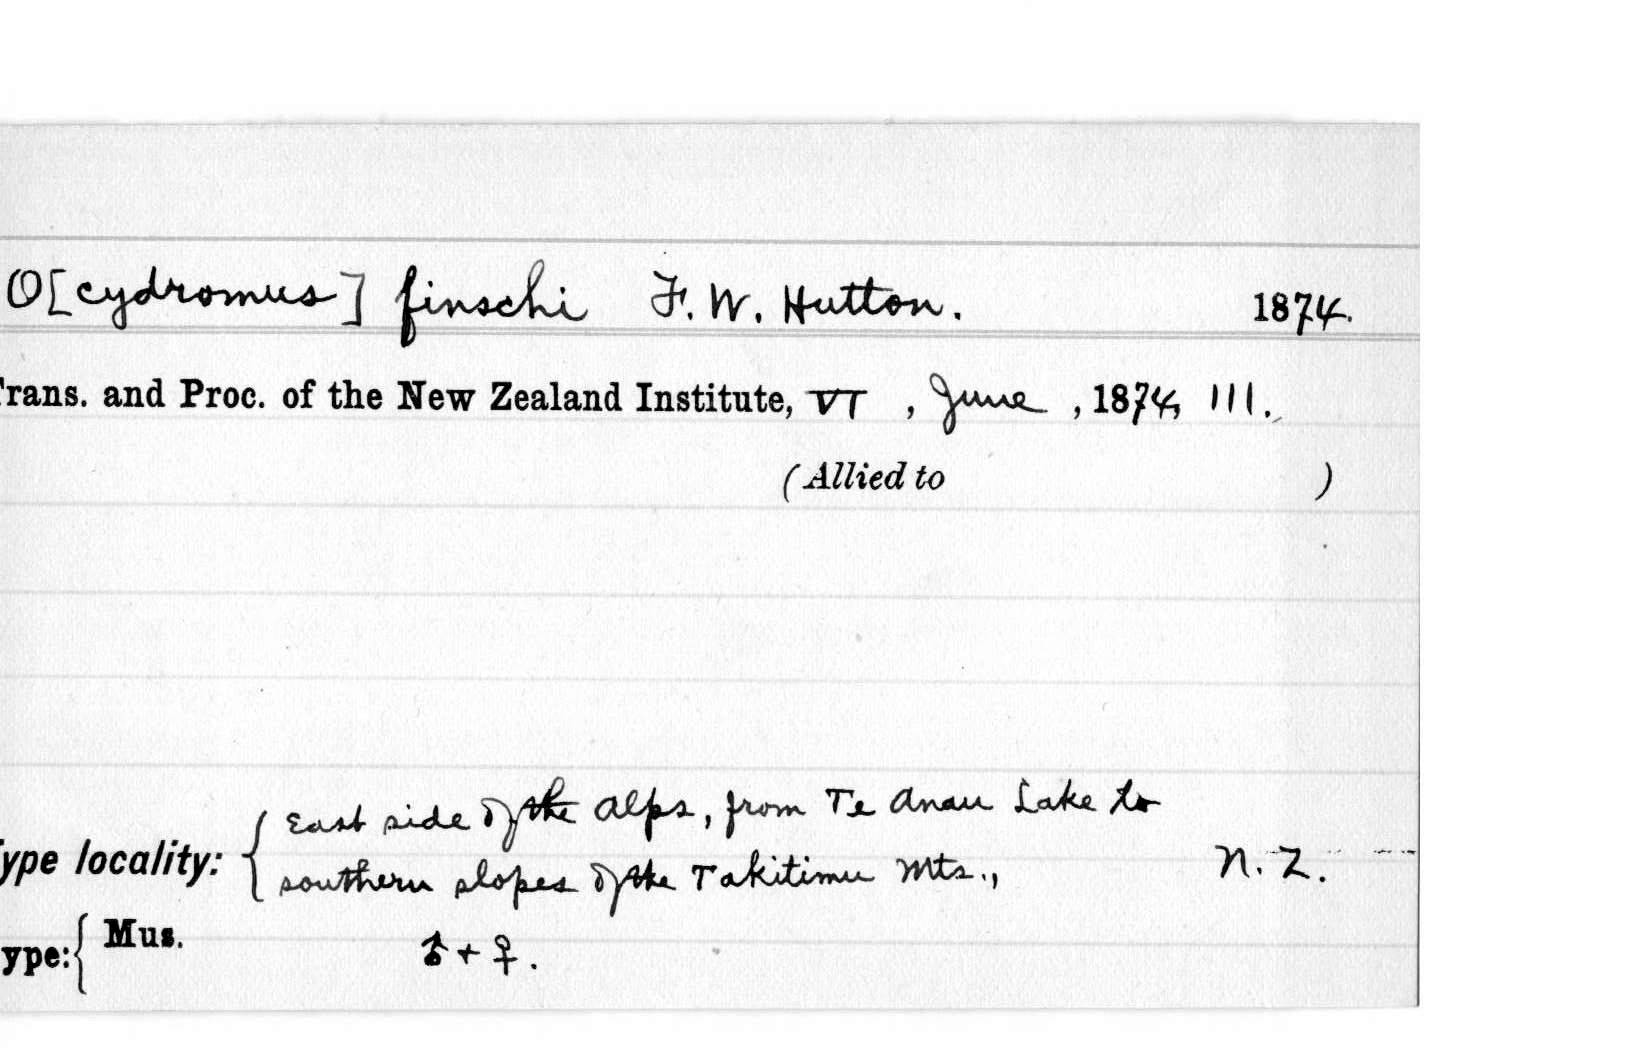 O[cydromus] finschi F. W. Hutton. 1874.
Trans. and Proc. of the New Zealand Institute, VI , June , 1874, 111.
(Allied to )
East side of the Alps, from Te Anau Lake to
Type locality: southern slopes of the Takitimu Mts., N. Z.
Mus. ♂ + ♀.
Type: